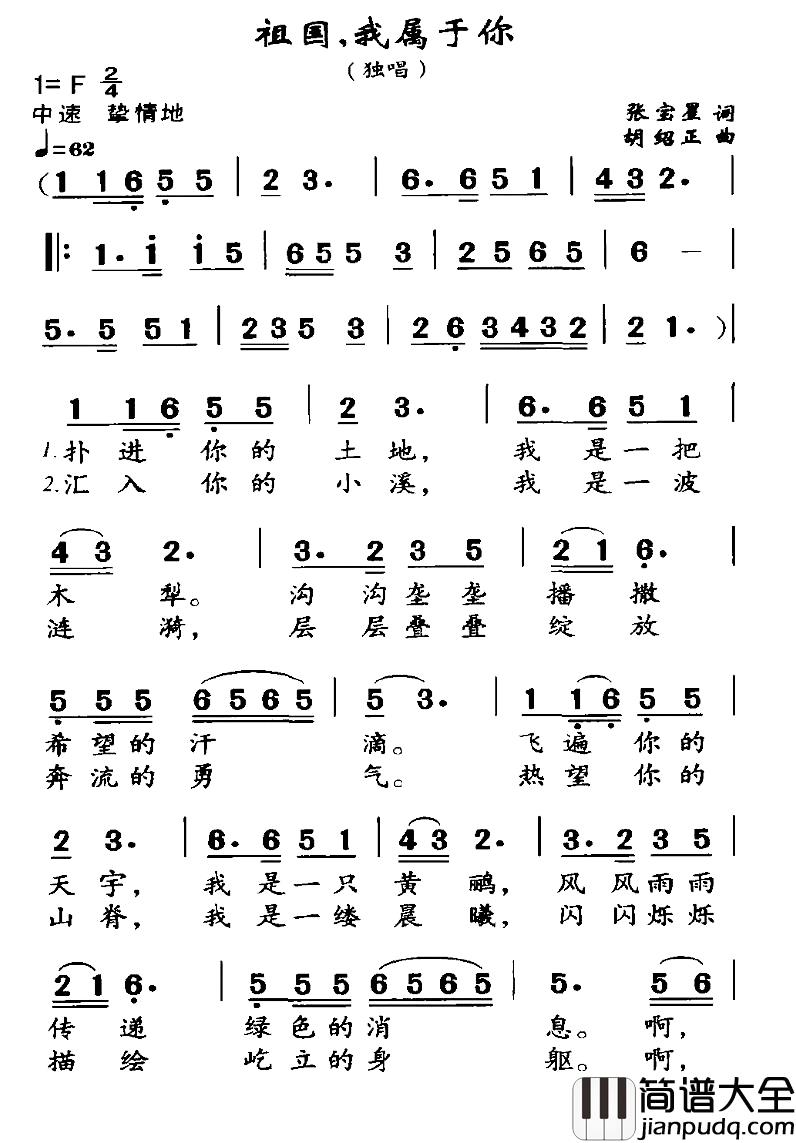 祖国,我属于你
(独唱)
1= F 2/4
中速 挚情地
♩=62
张宝星 词
胡绍正 曲
(1 1 6 5 5 | 2 3· | 6· 6 5 1 | 4 3 2· |
‖: 1· i i 5 | 6 5 5 3 | 2 5 6 5 | 6 － |
5· 5 5 1 | 2 3 5 3 | 2 6 3 4 3 2 | 2 1· )|
1 1 6 5 5 | 2 3· | 6· 6 5 1 |
1.扑进你的土地,我是一把
2.汇入你的小溪,我是一波
4 3 2· | 3· 2 3 5 | 2 1 6· |
木犁。沟沟垄垄播撒
涟漪,层层叠叠绽放
5 5 5 6 5 6 5 | 5 3· | 1 1 6 5 5 |
希望的汗滴。飞遍你的
奔流的勇气。热望你的
2 3· | 6· 6 5 1 | 4 3 2· | 3· 2 3 5 |
天宇,我是一只黄鹂,风风雨雨
山脊,我是一缕晨曦,闪闪烁烁
2 1 6· | 5 5 5 6 5 6 5 | 5· 5 6 |
传递绿色的消息。啊,
描绘屹立的身躯。啊,
简谱大全
jianpudq.com